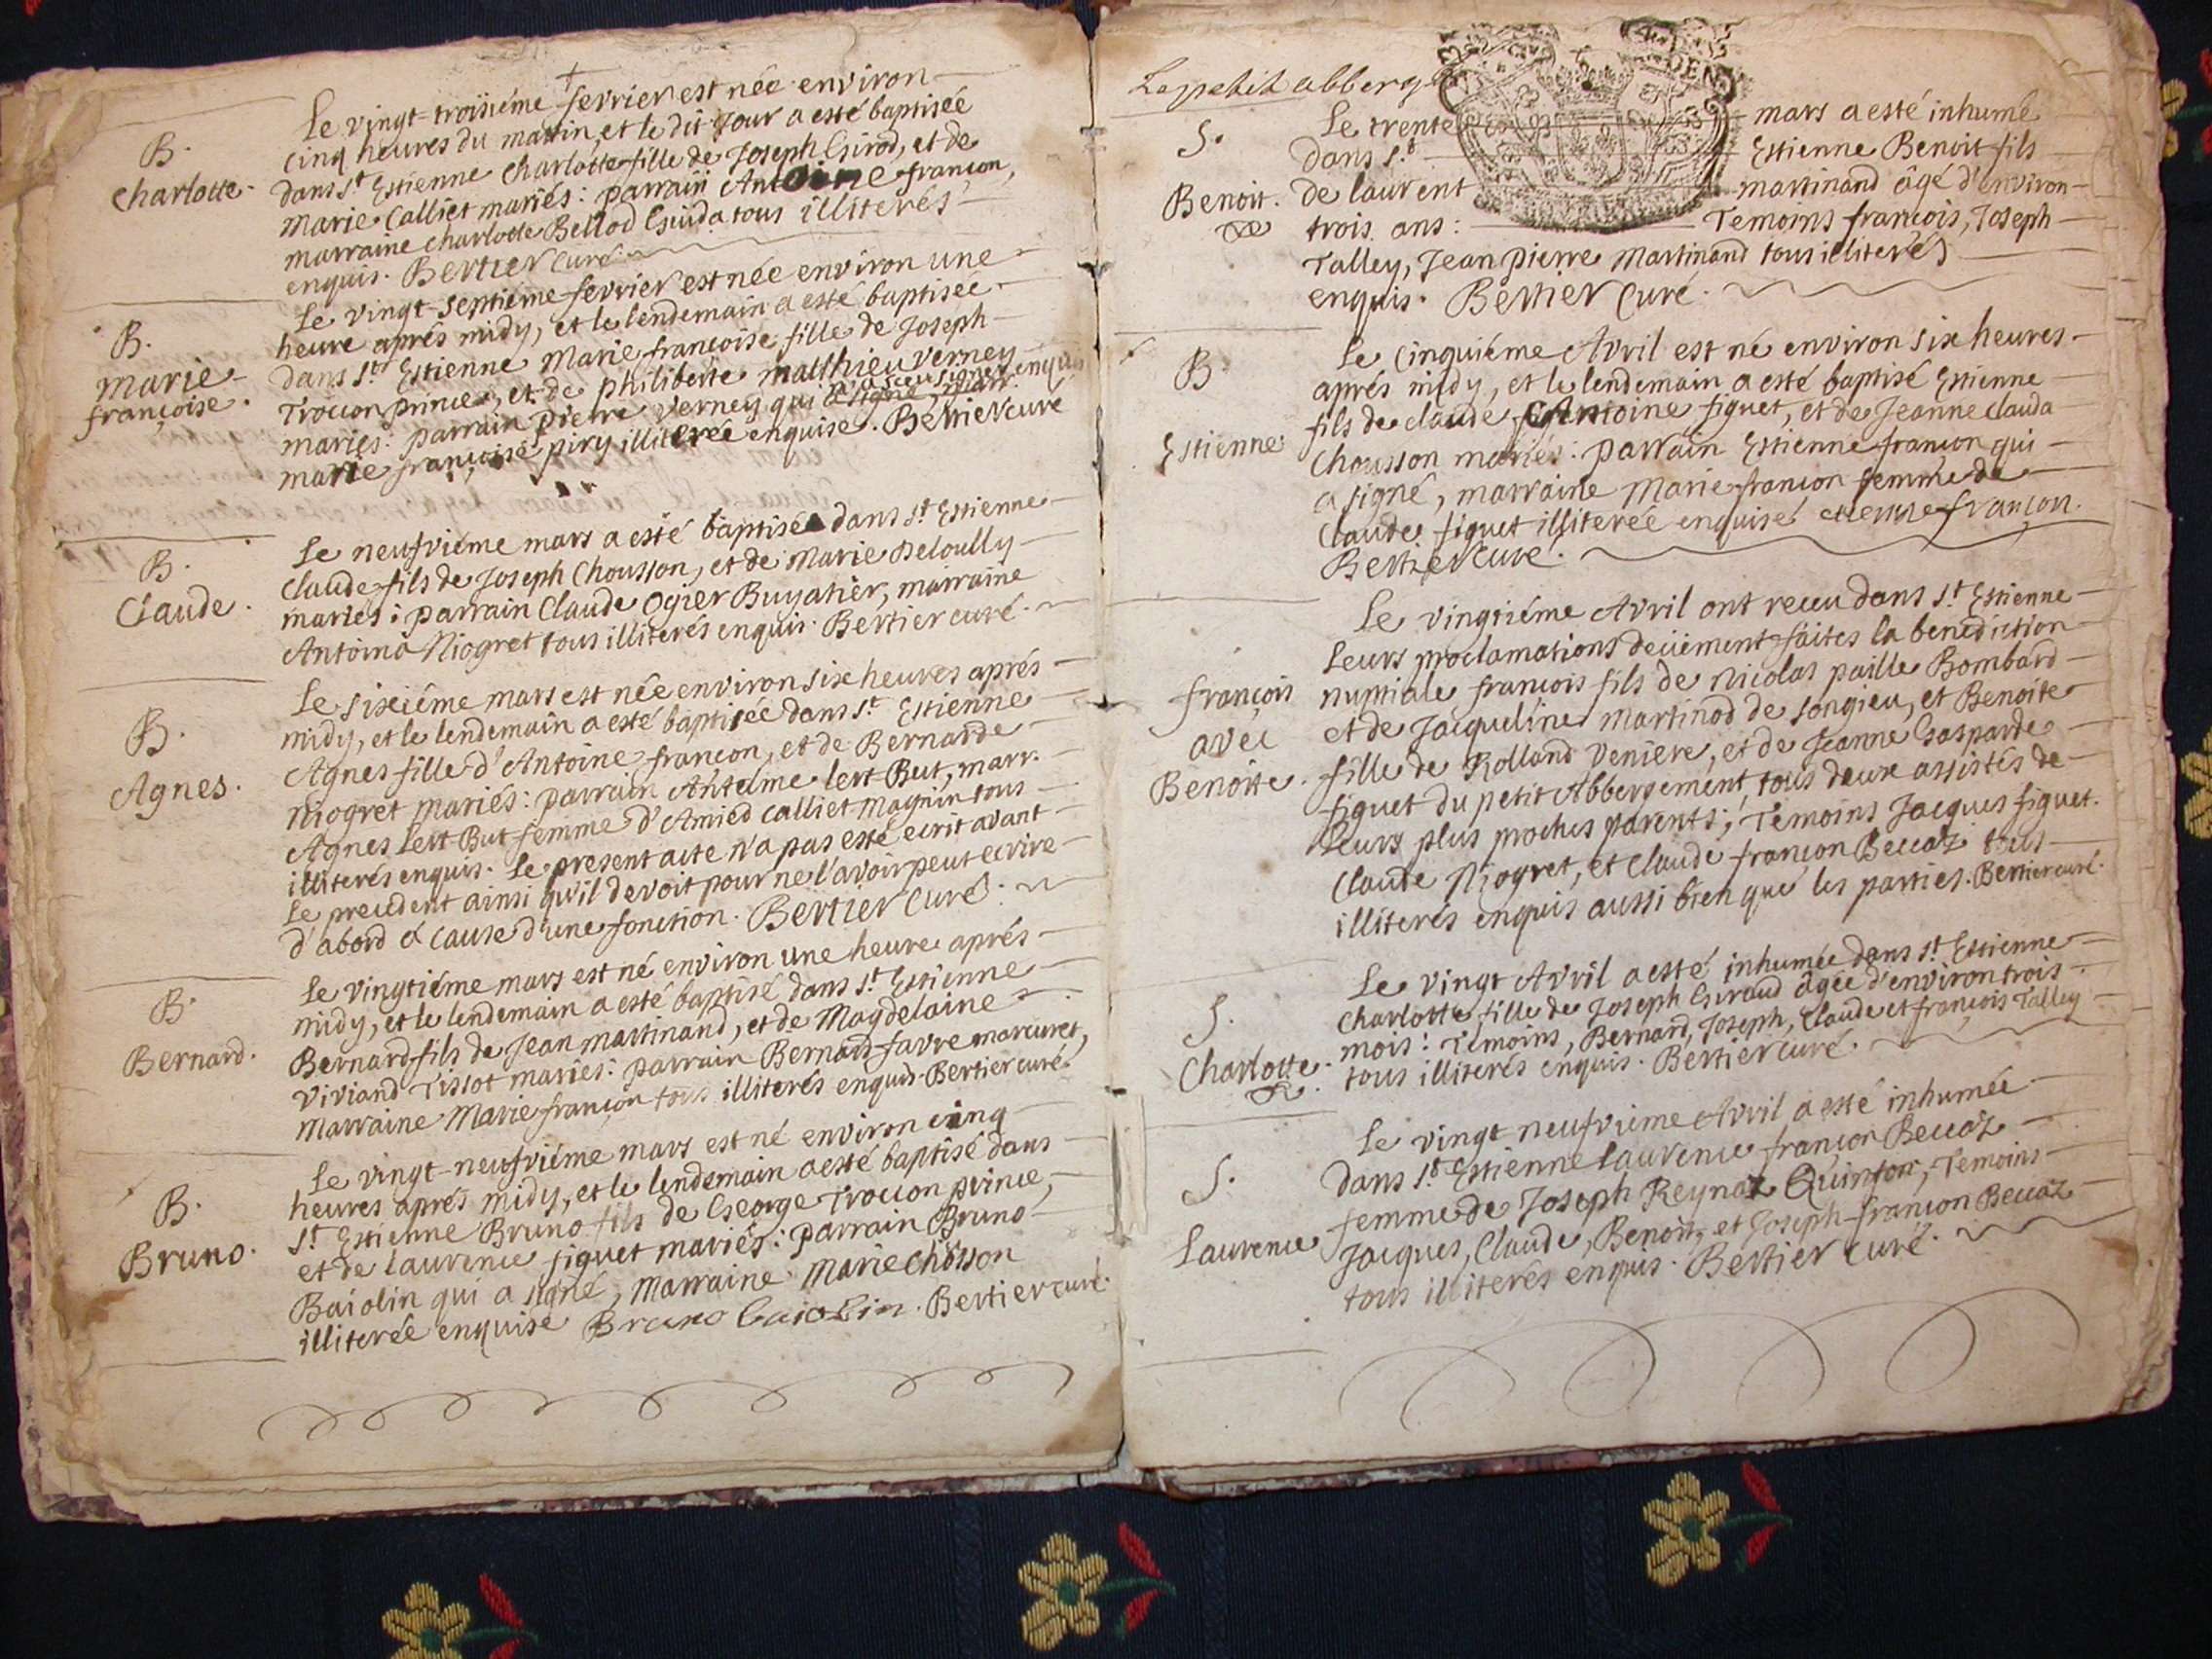 B.
Charlotte.
Le vingt-troisiéme fevrier est née environ
cinq heures du matin, et le dit jour a esté baptisée
dans St Estienne Charlotte fille de Joseph Girod, et de
Marie Calliet mariés: parrain Antoine françon,
marraine Charlotte Bellod Guida tous illiterés
enquis. Bertier curé.
B.
Marie
françoise.
Le vingt-septiéme fevrier est née environ une
heure aprés midy, et le lendemain a esté baptisée
dans St Estienne Marie françoise fille de Joseph
Trocion prince, et de philiberte Matthieu Verney
mariés: parrain pierre Verney qui a signé, marr.
marie françoise piry illiterée enquise. Bertier curé
B.
Claude.
Le neufviéme mars a esté baptisé dans St Estienne
Claude fils de Joseph Chousson, et de Marie Deloully
mariés: parrain Claude Ogier Buyatier, marraine
Antoina Niogret tous illiterés enquis. Bertier curé.
B.
Agnes.
Le sixiéme mars est née environ six heures aprés
midy, et le lendemain a esté baptisée dans St Estienne
Agnes fille d'Antoine françon, et de Bernarde
Niogret mariés: parrain Antelme lert-But, marr.
Agnes Lert-But femme d'Amied Calliet Magnin tous
illiterés enquis. Le present acte n'a pas esté ecrit avant
le precedent ainsi qu'il devoit pour ne l'avoir peut ecrire
d'abord à cause d'une fonction. Bertier Curé.
B.
Bernard.
Le vingtiéme mars est né environ une heure aprés
midy, et le lendemain a esté baptisé dans St Estienne
Bernard fils de Jean martinand, et de Magdelaine
Viviand Tissot mariés: parrain Bernard favre marcuret,
marraine Marie françon tous illiterés enquis. Bertier curé.
B.
Bruno.
Le vingt-neufviéme mars est né environ cinq
heures aprés midy, et le lendemain a esté baptisé dans
St Estienne Bruno fils de George Trocion prince,
et de laurence figuet mariés: parrain Bruno
Baiolin qui a signé, marraine Marie Chosson
illiterée enquise Bruno baiolin. Bertier curé.
Le petit abberg
S.
Benoit.
Le trente mars a esté inhumé
dans St Estienne Benoit fils
de laurent martinand âgé d'environ
trois ans: Temoins françois, Joseph
Talley, Jean pierre Martinand tous illiterés
enquis. Bertier Curé.
B.
Estienne.
Le Cinquiéme Avril est né environ six heures
aprés midy, et le lendemain a esté baptisé Estienne
fils de claude Antoine figuet, et de Jeanne Clauda
Chousson mariés: parrain Estienne françon qui
a signé, marraine Marie françon femme de
Claude figuet illiterée enquise etienne françon.
Bertier Curé.
françois
avec
Benoîte.
Le vingtiéme Avril ont receu dans St Estienne
leurs proclamations deüement faites la benediction
nuptiale françois fils de Nicolas paille Bombard
et de Jacqueline Martinod de Songieu, et Benoite
fille de Rolland Veniere, et de Jeanne Gasparde
figuet du petit Abbergement, tous deux assistés de
leurs plus proches parents; Temoins Jacques figuet.
Claude Niogret, et Claude françon Beccaz tous
illiterés enquis aussi bien que les parties. Bertier curé.
S.
Charlotte.
Le vingt Avril a esté inhumée dans St Estienne
Charlotte fille de Joseph Giraud âgée d'environ trois
mois: Temoins, Bernard, Joseph, Claude et françois Talley
tous illiterés enquis. Bertier curé.
S.
Laurence
Le vingt neufvième Avril a esté inhumée
dans St Estienne laurence françon Beccaz
femme de Joseph Reynaz Quinson, Temoins
Jacques, Claude, Benoit, et Joseph françon Beccaz
tous illiterés enquis. Bertier curé.